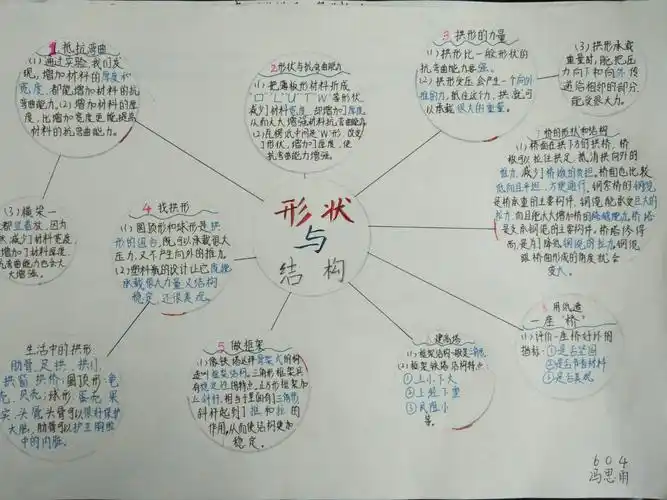 1 抵抗弯曲
(1)通过实验,我们发
现,增加材料的厚度和
宽度,都能增加材料的抗
弯曲能力。(2)增加材料的厚
度,比增加宽度更能提高
材料的抗弯曲能力。
2形状与抗弯曲能力
(1)把薄板形材料折成
“L”“U”“T”“W”等形状,
减少了材料宽度,却增加了厚度,
从而大大增强材料抗弯曲能力。
(2)瓦楞纸中间是“W”形,改变
了形状,增加了厚度,使
抗弯曲能力增强。
3 拱形的力量
(1)拱形比一般形状的
抗弯曲能力要强。
(2)拱形受压会产生一个向外
推的力,抵住这个力,拱就可
以承载很大的重量。
(3)拱形承载
重量时,能把压
力向下和向外传
递给相邻的部分
能受很大力。
(3)横梁一
都竖着放,因为
减少了材料宽度,
增加了材料厚度,
抗弯曲能力也会大
大增强。
4 找拱形
(1)圆顶形和球形是拱
形的组合,既可以承载很大
压力,又不产生向外的推力。
(2)塑料瓶的设计让它既能
承载很大力量,又结构
稳定,还很美观。
形状
与
结构
7 桥的形状和结构
(1)桥面在拱下方的拱桥,桥
板可以拉住拱足,抵消拱向外的
推力,减少了桥墩的负担,桥面也比较
低而且平坦,方便通行。钢索桥的钢缆
是桥承重的主要构件,钢缆能承受巨大的
拉力,
是支承钢缆的主要部件,桥塔修得
高,是为了降低钢缆的拉力,钢缆
跟桥面形成的角度就会
变大。
生活中的拱形:
肋骨、足拱、拱门、
拱窗、拱桥;圆顶形:龟
壳、贝壳;球形:蛋壳、果
实、头骨。头骨可以很好保护
大脑,肋骨可以护卫胸腔
中的内脏。
5 做框架
(1)像铁塔这样骨架式的构
造叫框架结构。三角形框架具
有稳定性的特点,正方形框架加
上斜杆,相当于里面有了三角形
斜杆起到了推和拉的
作用,从而使结构更加
稳定。
6 建高塔
(1)框架结构
(2)框架铁塔结构特点:
①上小下大
②上轻下重
③风阻小
等。
8 用纸造
一座“桥”
(1)评价一座桥好坏的
指标:①是否坚固
②是否节省材料
③是否美观
604
冯思雨